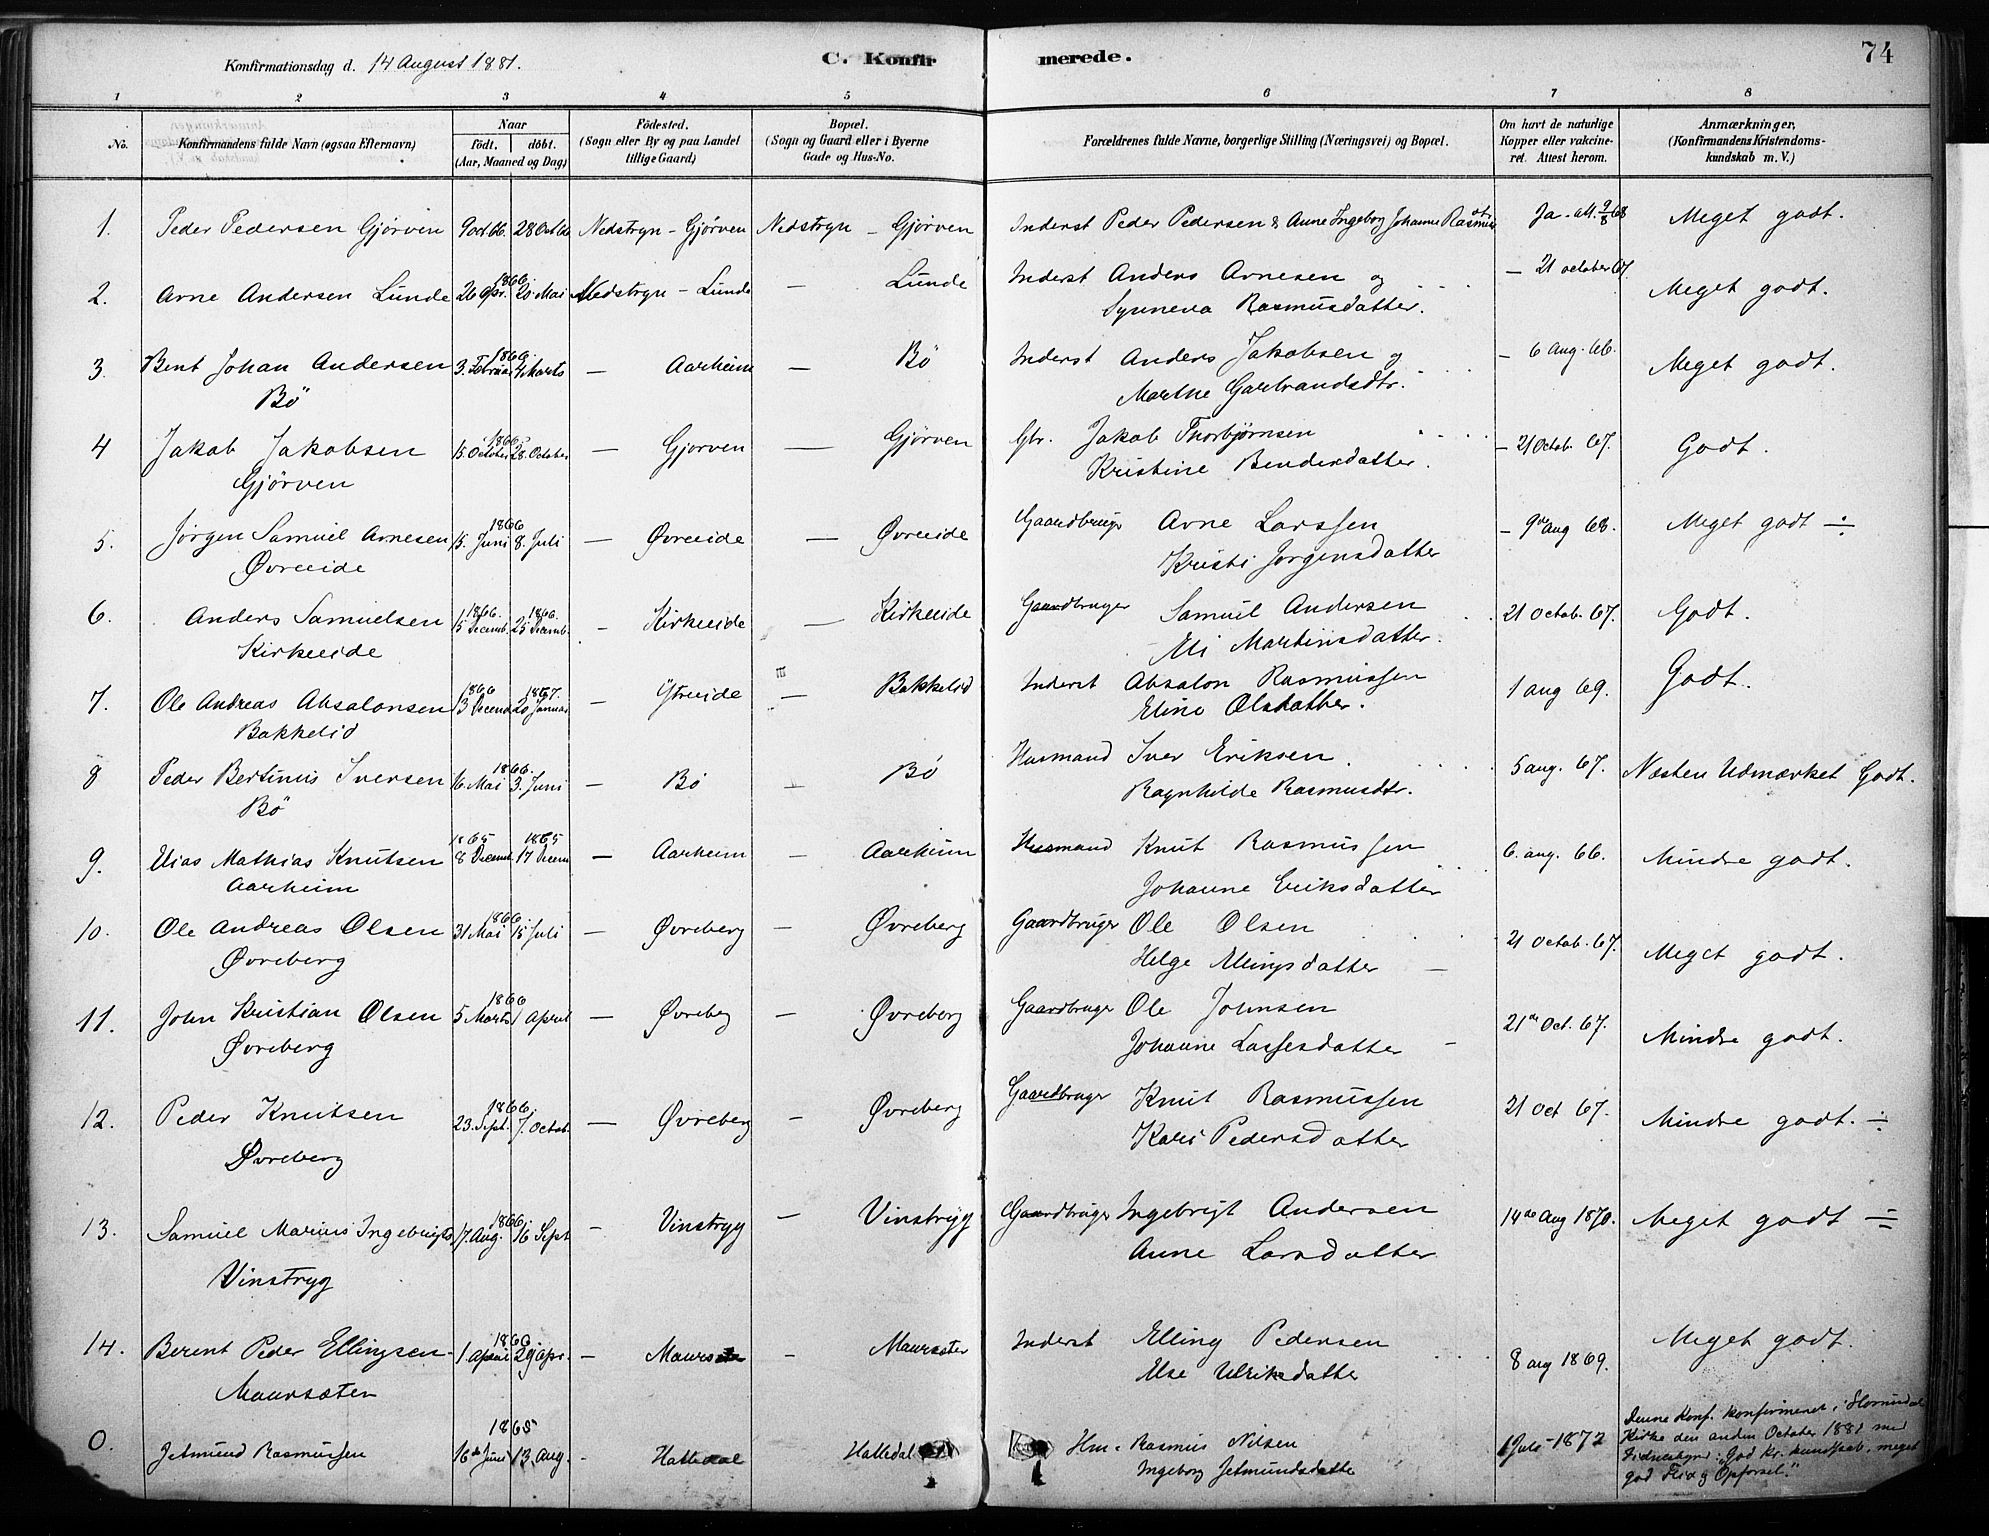 Konfirmationsdag d. 14 August 1881.
C. Konfirmerede.
74
1 2 3 4 5 6 7 8
No.
Konfirmandens fulde Navn (ogsaa Efternavn)
Naar
födt. döbt.
(Aar, Maaned og Dag)
Födested.
(Sogn eller By og paa Landet tillige Gaard)
Bopæl.
(Sogn og Gaard eller i Byerne Gade og Hus-No.
Forældrenes fulde Navne, borgerlige Stilling (Næringsvei) og Bopæl.
Om havt de naturlige Kopper eller vakcineret. Attest herom.
Anmærkninger,
(Konfirmandens Kristendomskundskab m. V.)
1. Peder Pedersen Gjörven 9 oct 66. 28 Oct 66 Nedstryn - Gjörven Nedstryn - Gjörven Inderst Peder Pedersen & Anne Ingeborg Johanne Rasmusdtr. Ja - att. 9/8 68 Meget godt.
1866
2. Arne Andersen Lunde 26 Apr. 20 Mai Nedstryn - Lunde — Lunde Inderst Anders Arnesen og — 21 october 67. Meget godt.
Synneva Rasmusdatter.
1866
3. Bent Johan Andersen 3. Februar 4 Marts — Aarheim — Bö Inderst Anders Jakobsen og — 6 aug. 66. Meget godt.
Bö Marthe Garbrandsdtr.
1866
4 Jakob Jakobsen 15. October 28. October — Gjorven — Gjörven Gbr. Jakob Thorbjørnsen — 21 Octob. 67. Godt.
Gjörven Kristine Bendixdatter.
1866
5. Jörgen Samuel Arnesen 15. Juni 8. Juli — Øvreeide — Øvreeide Gaardbruger Arne Larssen — 9de aug 68. Meget godt ÷
Øvreeide Kristi Jorgensdatter
1866. 1866.
6 Anders Samuelsen 15 Decemb. 25 Decemb. — Kirkeeide — Kirkeeide Gaardbruger Samuel Andersen 21 Octob. 67. Godt.
Kirkeeide Eli Martinsdatter.
1866 1867.
7. Ole Andreas Absalonsen 13 Decemb 20 Januar — Ytreeide — Bakkelid Inderst Absalon Rasmussen 1 aug 69. Godt.
Bakkelid Eline Olsdatter.
1866.
8 Peder Bertinus Iversen 16. Mai 3. Juni — Bö — Bö Husmand Iver Eriksen. 5 aug. 67. Næsten Udmærket Godt.
Bö Ragnhilde Rasmusdtr.
1865 1865
9. Elias Mathias Knutsen 8 Decemb. 17 Decem — Aarheim — Aarheim Husmand Knut Rasmussen 6. aug. 66. Mindre godt.
Aarheim Johanne Eriksdatter
1866
10. Ole Andreas Olsen 31 Mai 15 Juli — Øvreberg — Øvreberg Gaardbruger Ole Olsen 21 Octob. 67. Meget godt.
Øvreberg Helge Ellingsdatter —
1866
11. John Kristian Olsen 5 Marts 1 April — Øvreberg — Øvreberg Gaardbruger Ole Johnsen 21de Oct. 67. Mindre godt.
Øvreberg Johanne Lassesdatter —
1866.
12. Peder Knutsen 23. Sept. 7. Octob. — Øvreberg — Øvreberg Gaardbruger Knut Rasmussen 21 Oct 67. Mindre godt. ÷
Øvreberg Kari Pedersdatter
1866
13. Samuel Marius Ingebrigts 17. Aug. 16 Sept — Vinstryg — Vinstryg Gaardbruger Ingebrigt Andersen 14de Aug 1870. Meget godt ÷
Vinstryg Anne Larsdatter
14. Berent Peder Ellingsen 1. April 29 Apr. — Maursæter — Maursæter Inderst Elling Pedersen 8 aug 1869. Meget godt.
Maursæter Else Ulriksdatter
1865
0. Jetmund Rasmussen 16de Juni 13. Aug. — Halledal Halledal Hm. Rasmus Nilsen 1 Juli - 1872 Denne Konf. konfirmeret i Hornindal
Ingeborg Jetmundsdatte Kirke den anden October 1881 med
Vidnesbyrd: "God Kr. kundskab, meget
god Flid & Opførsel."